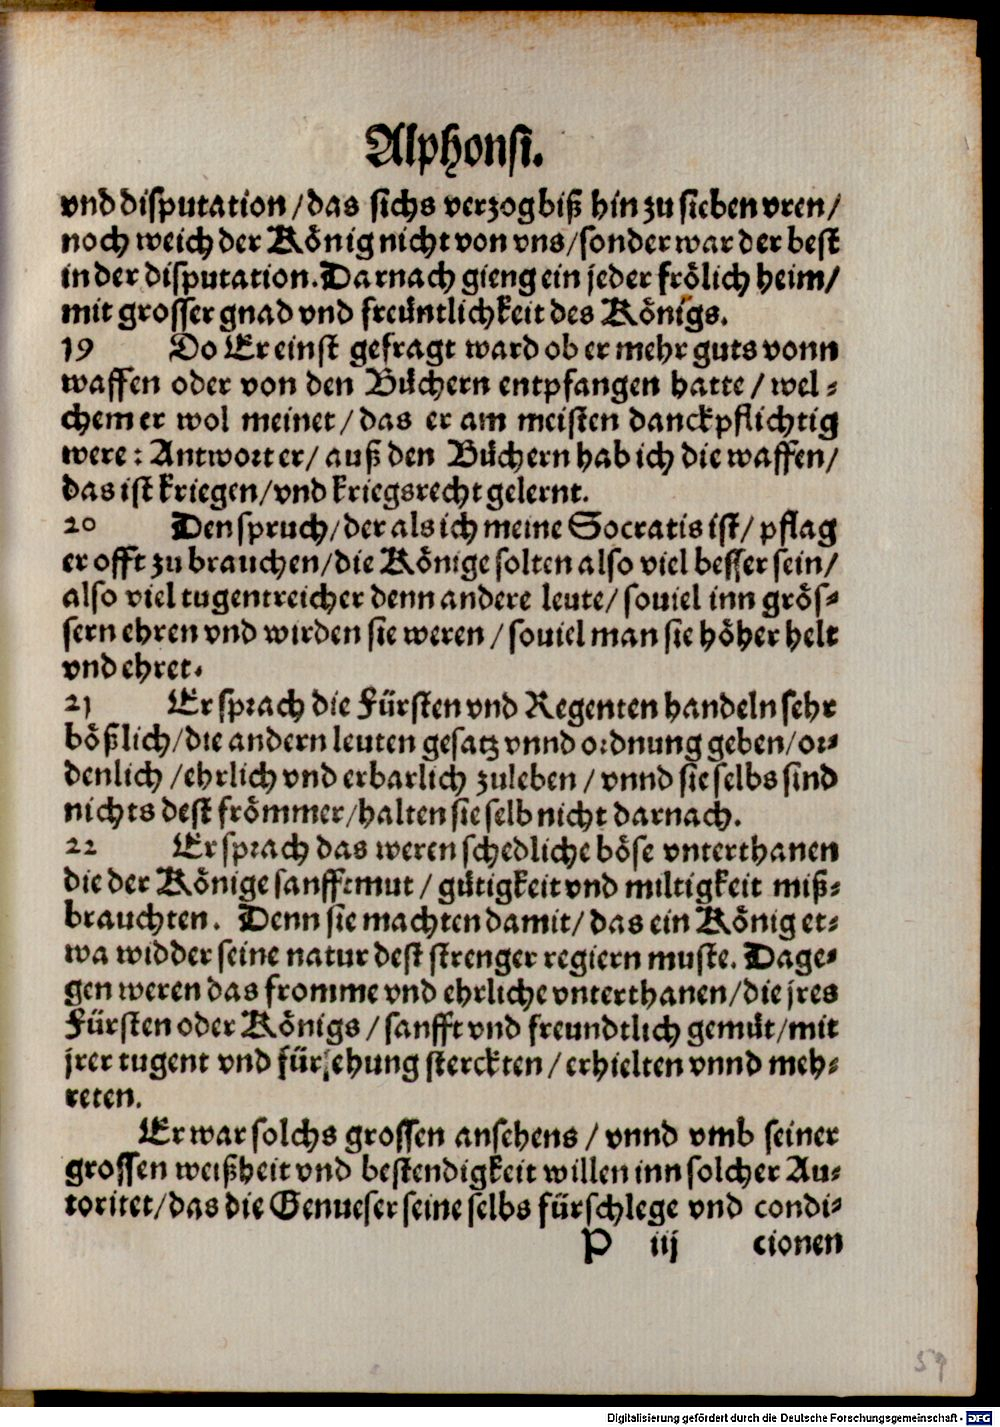 Alphonsi.
vnd disputation / das sichs verzog biß hin zu sieben vren /
noch weich der König nicht von vns / sonder war der best
in der disputation. Darnach gieng ein jeder frölich heim /
mit grosser gnad vnd freüntlichkeit des Königs.
19 Do Er einst gefragt ward ob er mehr guts vonn
waffen oder von den Büchern entpfangen hatte / wel-
chem er wol meinet / das er am meisten danckpflichtig
were : Antwort er / auß den Büchern hab ich die waffen /
das ist kriegen / vnd kriegsrecht gelernt.
20 Den spruch / der als ich meine Socratis ist / pflag
er offt zu brauchen / die Könige solten also viel besser sein /
also viel tugentreicher denn andere leute / souiel inn grös-
sern ehren vnd wirden sie weren / souiel man sie höher helt
vnd ehret.
21 Er sprach die Fürsten vnd Regenten handeln sehr
bößlich / die andern leuten gesatz vnnd ordnung geben / or-
denlich / ehrlich vnd erbarlich zuleben / vnnd sie selbs sind
nichts dest frömmer / halten sie selb nicht darnach.
22 Er sprach das weren schedliche böse vnterthanen
die der Könige sanfftmut / gütigkeit vnd miltigkeit miß-
brauchten. Denn sie machten damit / das ein König et-
wa widder seine natur dest strenger regiern muste. Dage-
gen weren das fromme vnd ehrliche vnterthanen / die jres
Fürsten oder Königs / sanfft vnd freundtlich gemüt / mit
jrer tugent vnd fürsehung sterckten / erhielten vnnd meh-
reten.
Er war solchs grossen ansehens / vnnd vmb seiner
grossen weißheit vnd bestendigkeit willen inn solcher Au-
toritet / das die Genueser seine selbs fürschlege vnd condi-
P iij cionen
59
Digitalisierung gefördert durch die Deutsche Forschungsgemeinschaft - DFG